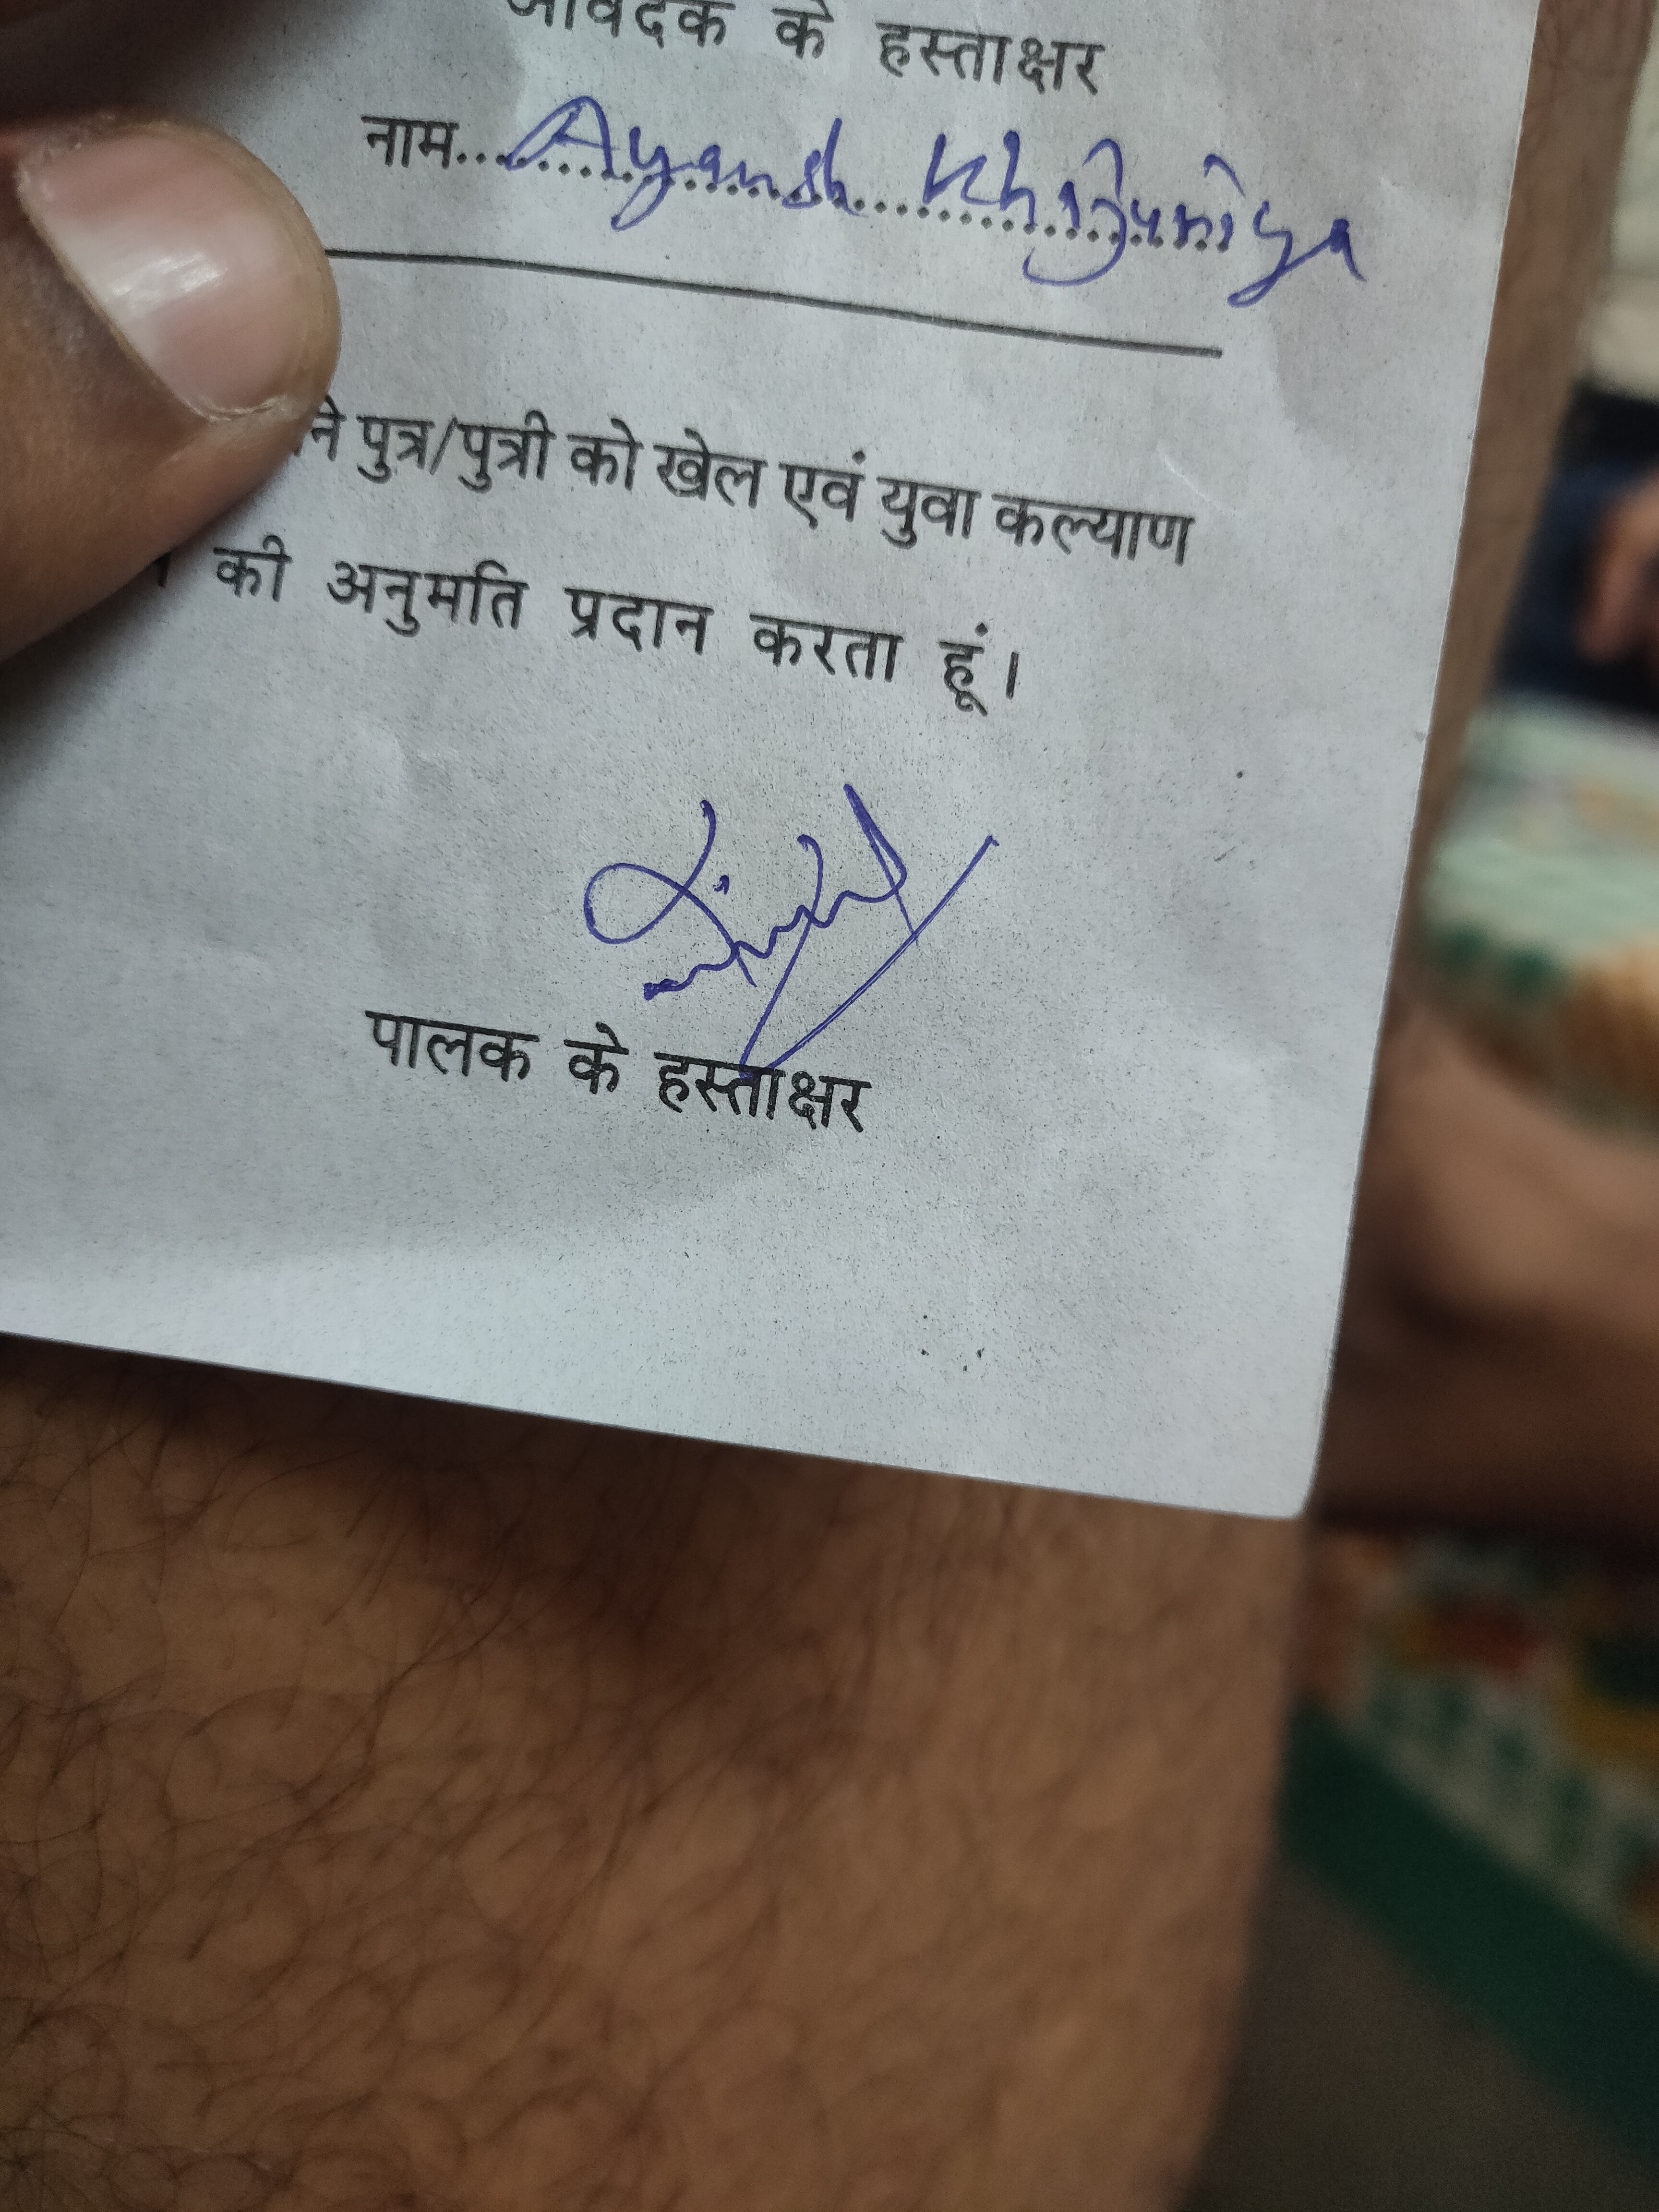 आवेदक के हस्ताक्षर
नाम... Ayansh Khajuriya
ने पुत्र/पुत्री को खेल एवं युवा कल्याण
की अनुमति प्रदान करता हूं।
पालक के हस्ताक्षर